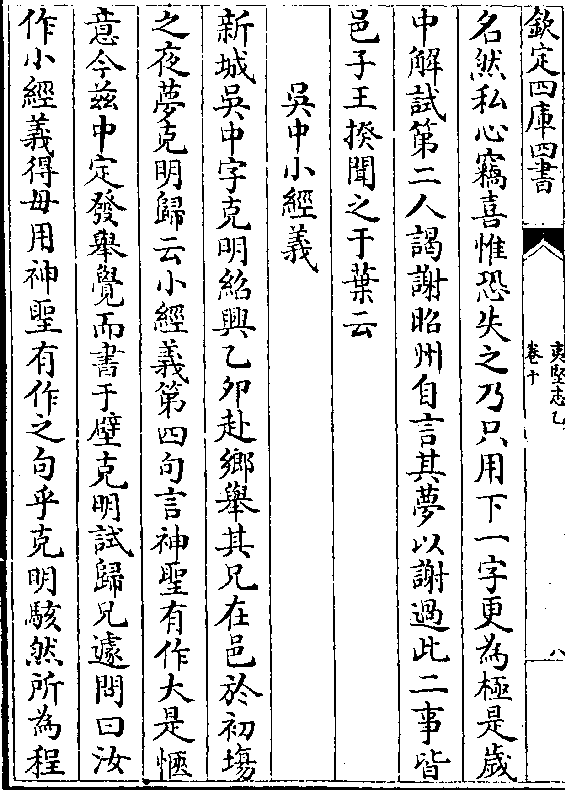 欽定四庫四書
夷堅志乙
卷十
八
名然私心竊喜惟恐失之乃只用下一字更為極是歲
中解試第二人謁謝昭州自言其夢以謝過此二事皆
邑子王揆聞之于葉云
吳中小經義
新城吳中字克明紹興乙卯赴鄉舉其兄在邑於初塲
之夜夢克明歸云小經義第四句言神聖有作大是愜
意今兹中定發舉覺而書于壁克明試歸兄遽問曰汝
作小經義得毋用神聖有作之句乎克明駭然所為程